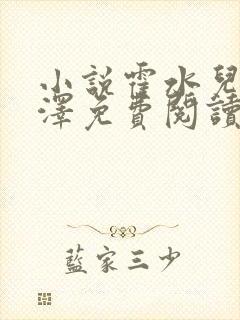 小說霍水兒
澤免費閱讀
藍家三少